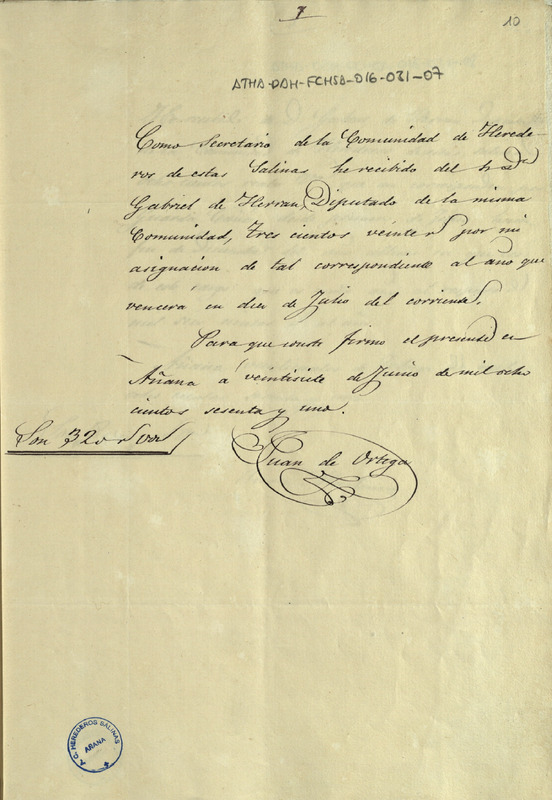 7
10
ATHA-DAH-FCHSA-016-031-07
Como Secretario de la Comunidad de Herede-
ros de estas Salinas he recibido del
Gabriel de Herran, Diputado de la misma
Comunidad, tres cientos veinte rs por mi
asignacion de tal correspondiente al año que
vencerá en diez de Julio del corriente.
Para que conste firmo el presente en
Añana á veintisiete de Junio de mil ocho
cientos sesenta y uno.
Son 320 rs von
Juan de Ortega
C. HEREDEROS SALINAS
AÑANA